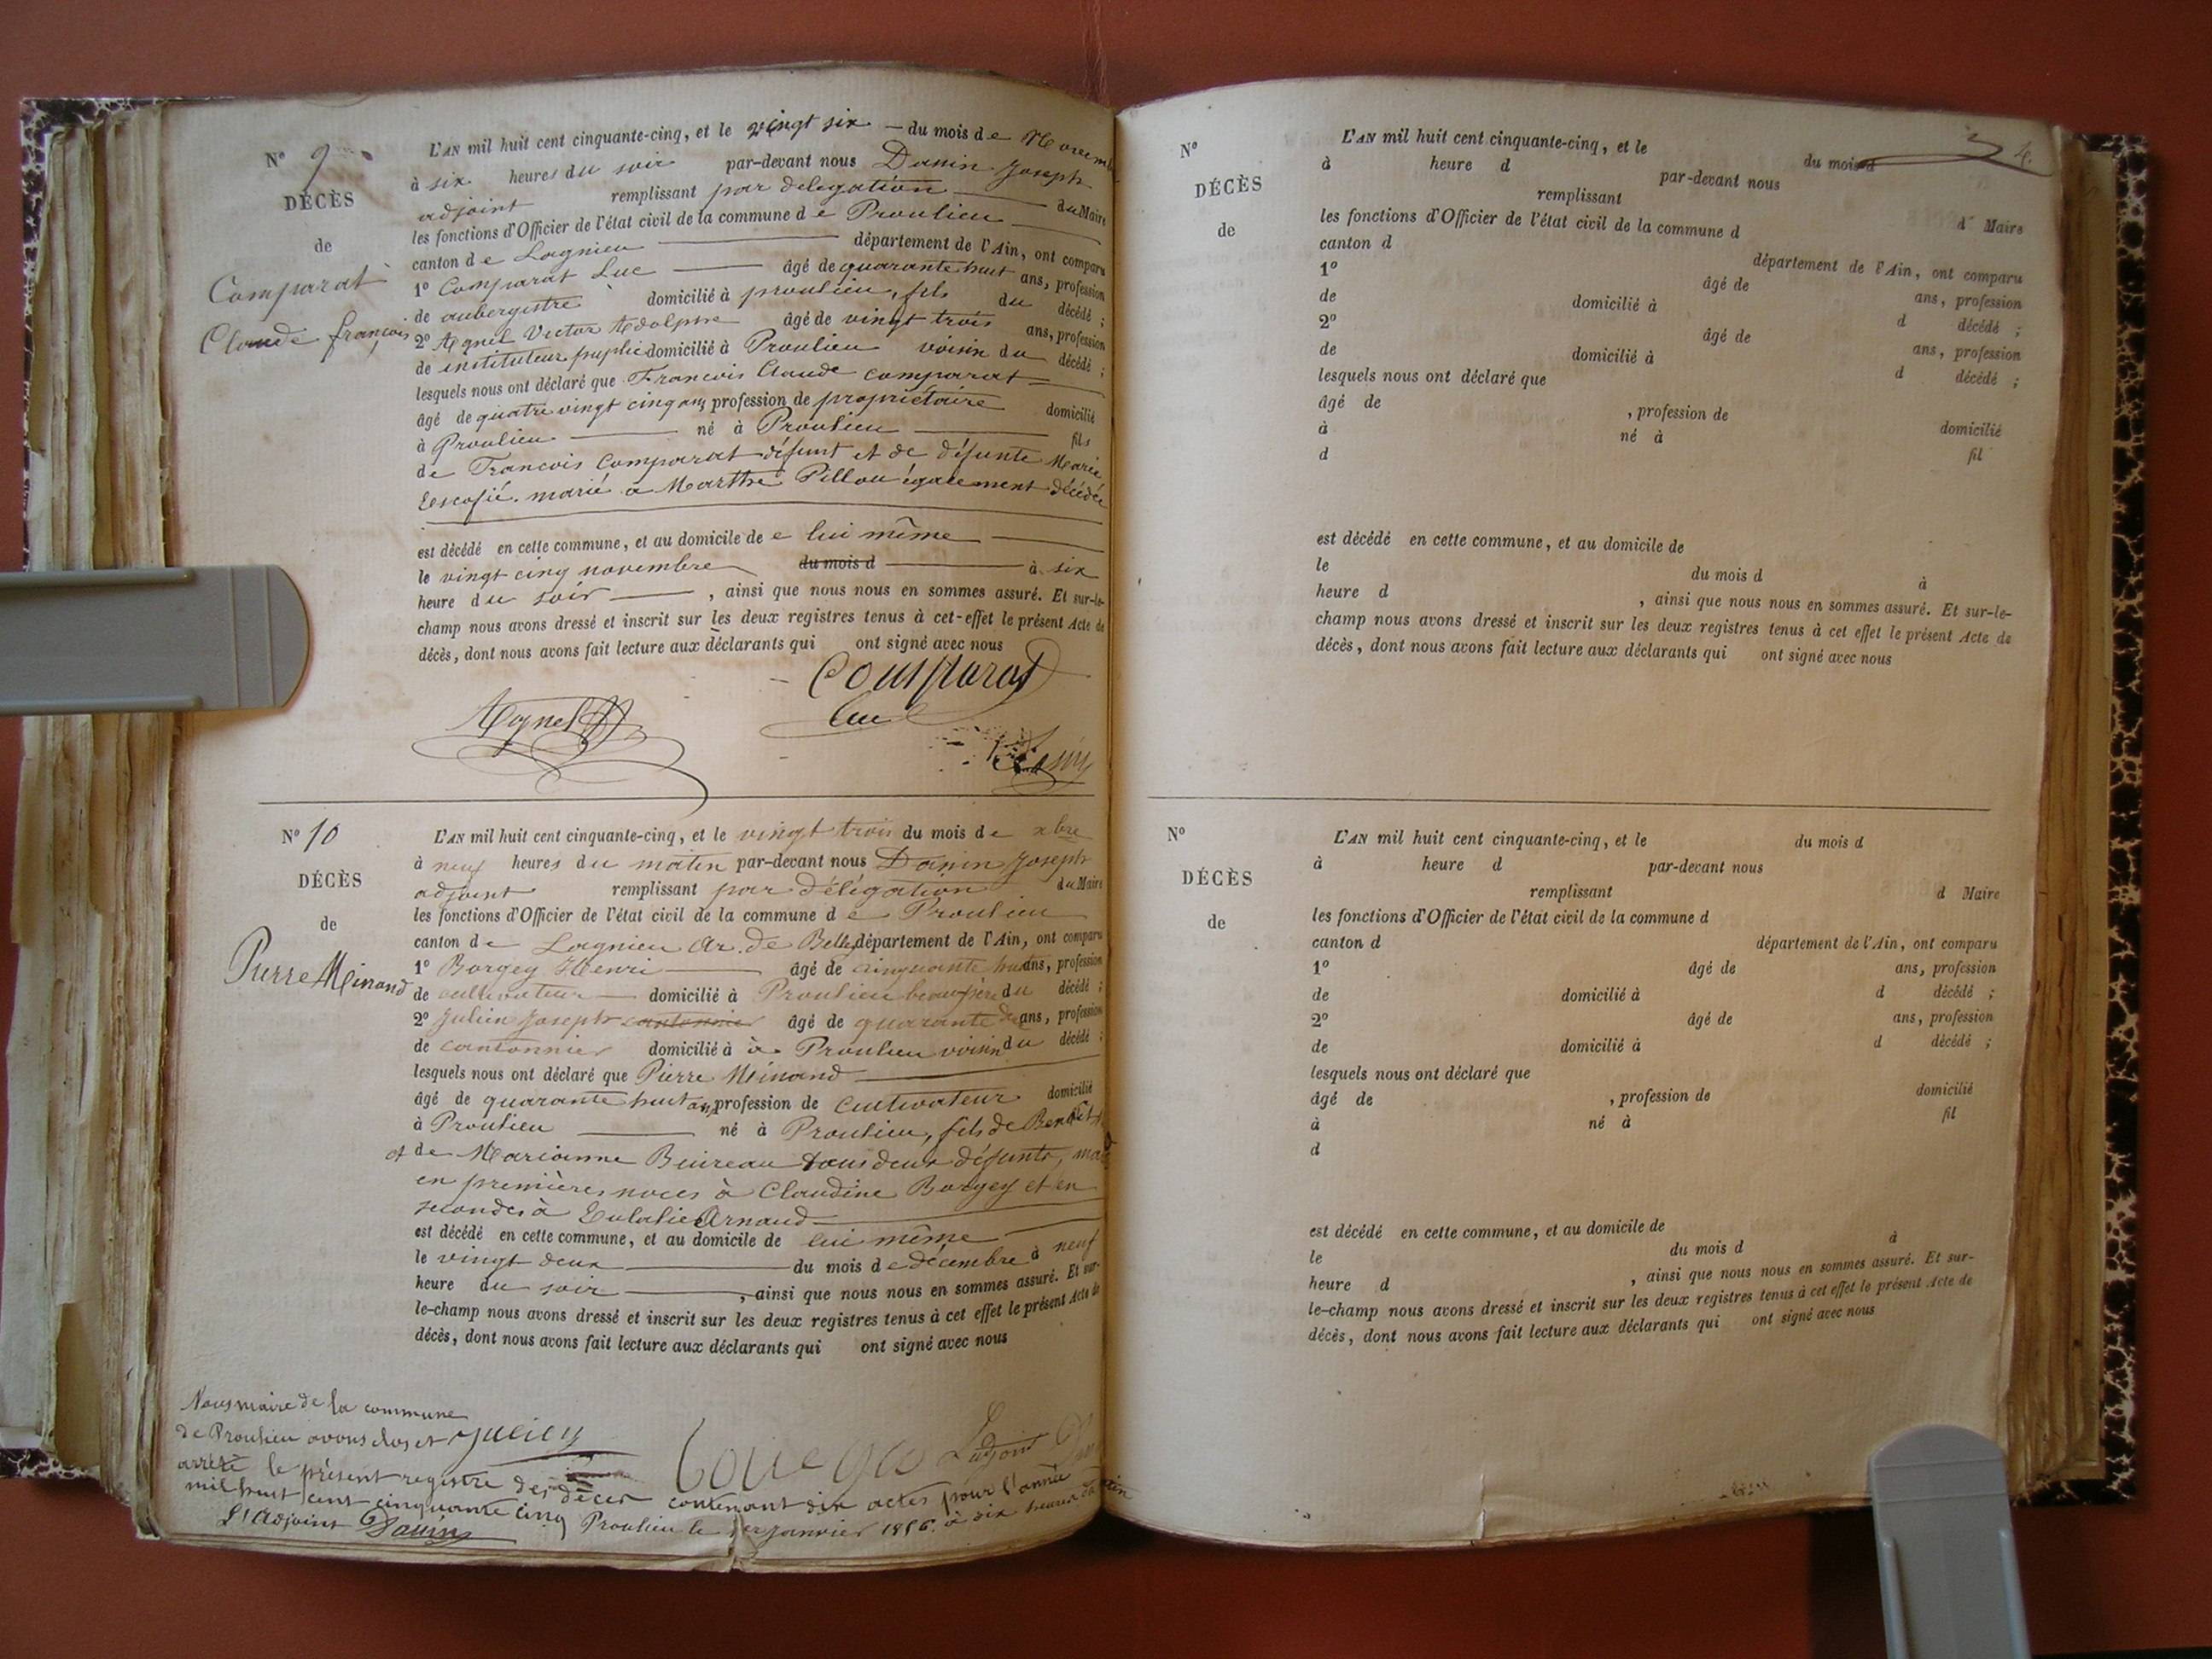 N° 9
DÉCÈS
de
Comparat
Claude françois
L'AN mil huit cent cinquante-cinq, et le vingt six — du mois de Novembre
à six heures du soir par-devant nous Danin Joseph
adjoint remplissant par delegation du Maire
les fonctions d'Officier de l'état civil de la commune de Proulieu
canton de Lagnieu département de l'Ain, ont comparu
1° Comparat Luc âgé de quarante huit ans, profession
de aubergiste domicilié à proulieu, fils du décédé ;
2° Agnel Victor Adolphe âgé de vingt trois ans, profession
de instituteur puplic domicilié à Proulieu voisin du décédé ;
lesquels nous ont déclaré que Francois Claude comparat
âgé de quatre vingt cinq ans, profession de propriétaire domicilié
à Proulieu né à Proulieu fils
de Francois Comparat défunt et de défunte Marie
Escofié. marié a Marthe Pillou également décédée
est décédé en cette commune, et au domicile de e lui même
le vingt cinq novembre du mois d à six
heure du soir , ainsi que nous nous en sommes assuré. Et sur-le-
champ nous avons dressé et inscrit sur les deux registres tenus à cet-effet le présent Acte de
décès, dont nous avons fait lecture aux déclarants qui ont signé avec nous
Comparat
Luc
Agnel
N° 10
DÉCÈS
de
Pierre Meinand
L'AN mil huit cent cinquante-cinq, et le vingt trois du mois de xbre
à neuf heures du matin par-devant nous Danin Joseph
adjoint remplissant par délégation du Maire
les fonctions d'Officier de l'état civil de la commune de Proulieu
canton de Lagnieu Ar. de Belley département de l'Ain, ont comparu
1° Borgey Henri âgé de cinquante huit ans, profession
de cultivateur domicilié à Proulieu beau-père du décédé ;
2° Julien Joseph cantonnier âgé de quarante deux ans, profession
de cantonnier domicilié à à Proulieu voisin du décédé ;
lesquels nous ont déclaré que Pierre Meinand
âgé de quarante huit ans, profession de cultivateur domicilié
à Proulieu né à Proulieu, fils de Benoît
et de Marianne Buireau tous deux défunts,
en premières noces à Claudine Borgey et en
secondes à Eulalie Arnaud
est décédé en cette commune, et au domicile de lui même
le vingt deux du mois de décembre à neuf
heure du soir , ainsi que nous nous en sommes assuré. Et sur-
le-champ nous avons dressé et inscrit sur les deux registres tenus à cet effet le présent Acte de
décès, dont nous avons fait lecture aux déclarants qui ont signé avec nous
Nous maire de la commune
de Proulieu avons clos et Julien
L'adjoint
arrêté le présent registre des décès contenant dix actes pour l'année
mil huit cent cinquante cinq Proulieu le 1er janvier 1856. à six heures du matin
L'Adjoint Danin
4.
N°
DÉCÈS
de
L'AN mil huit cent cinquante-cinq, et le du mois d
à heure d par-devant nous
remplissant d Maire
les fonctions d'Officier de l'état civil de la commune d
canton d département de l'Ain, ont comparu
1° âgé de ans, profession
de domicilié à d décédé ;
2° âgé de ans, profession
de domicilié à d décédé ;
lesquels nous ont déclaré que
âgé de , profession de domicilié
à né à fil
d
est décédé en cette commune, et au domicile de
le du mois d à
heure d , ainsi que nous nous en sommes assuré. Et sur-le-
champ nous avons dressé et inscrit sur les deux registres tenus à cet effet le présent Acte de
décès, dont nous avons fait lecture aux déclarants qui ont signé avec nous
N°
DÉCÈS
de
L'AN mil huit cent cinquante-cinq, et le du mois d
à heure d par-devant nous
remplissant d Maire
les fonctions d'Officier de l'état civil de la commune d
canton d département de l'Ain, ont comparu
1° âgé de ans, profession
de domicilié à d décédé ;
2° âgé de ans, profession
de domicilié à d décédé ;
lesquels nous ont déclaré que
âgé de , profession de domicilié
à né à fil
d
est décédé en cette commune, et au domicile de
le du mois d à
heure d , ainsi que nous nous en sommes assuré. Et sur-
le-champ nous avons dressé et inscrit sur les deux registres tenus à cet effet le présent Acte de
décès, dont nous avons fait lecture aux déclarants qui ont signé avec nous